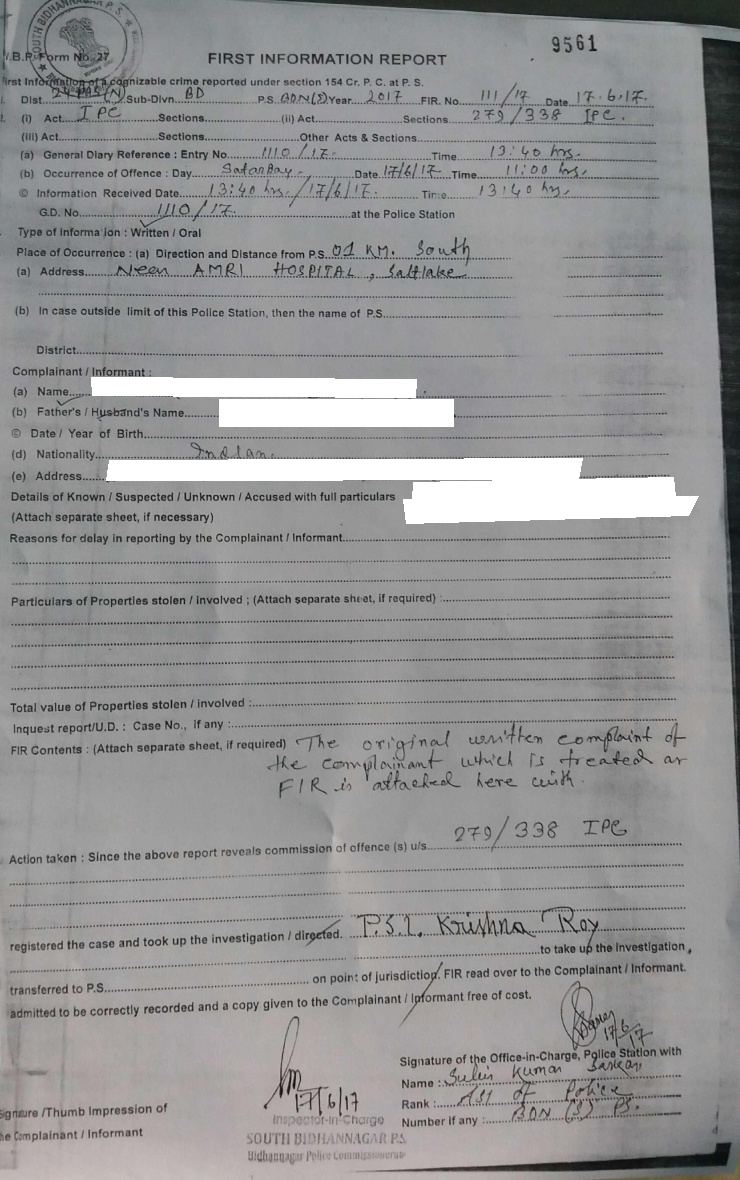 SOUTH BIDHANNAGAR P.S.
9561
W.B.P. Form No. 27
FIRST INFORMATION REPORT
First Information of a cognizable crime reported under section 154 Cr. P. C. at P. S.
Dist. 24 PGS(N) Sub-Divn. BD P.S. BDN(S) Year 2017 FIR. No. 111/17 Date 17.6.17.
(i) Act IPC Sections (ii) Act Sections 279/338 IPC.
(iii) Act Sections Other Acts & Sections
(a) General Diary Reference : Entry No. 1110/17. Time 13:40 hrs.
(b) Occurrence of Offence : Day Saturday Date 17/6/17 Time 11:00 hrs.
© Information Received Date 13:40 hrs./17/6/17. Time 13:40 hrs,
G.D. No. 1110/17. at the Police Station
Type of Information : Written / Oral
Place of Occurrence : (a) Direction and Distance from P.S. 01 KM. South
(a) Address Near AMRI HOSPITAL, Saltlake
(b) In case outside limit of this Police Station, then the name of P.S.
District
Complainant / Informant :
(a) Name
(b) Father's / Husband's Name
© Date / Year of Birth
(d) Nationality Indian.
(e) Address
Details of Known / Suspected / Unknown / Accused with full particulars
(Attach separate sheet, if necessary)
Reasons for delay in reporting by the Complainant / Informant
Particulars of Properties stolen / involved ; (Attach separate sheet, if required) :
Total value of Properties stolen / involved :
Inquest report/U.D. : Case No., if any :
FIR Contents : (Attach separate sheet, if required) The original written complaint of
the complainant which is treated as
FIR is attached here with.
Action taken : Since the above report reveals commission of offence (s) u/s. 279/338 IPC
registered the case and took up the investigation / directed. P.S.I. Krishna Roy
to take up the Investigation,
transferred to P.S. on point of jurisdiction. FIR read over to the Complainant / Informant.
admitted to be correctly recorded and a copy given to the Complainant / Informant free of cost.
17/6/17
Signature of the Office-in-Charge, Police Station with
Name : Kumar Sarkar
Rank : ASI of Police
Number if any : BDN (S) PS.
17/6/17
Inspector-in-Charge
SOUTH BIDHANNAGAR P.S.
Bidhannagar Police Commissionerate
Signature /Thumb Impression of
the Complainant / Informant